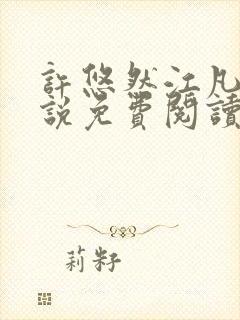 許悠然江凡
說免費閱讀
莉籽